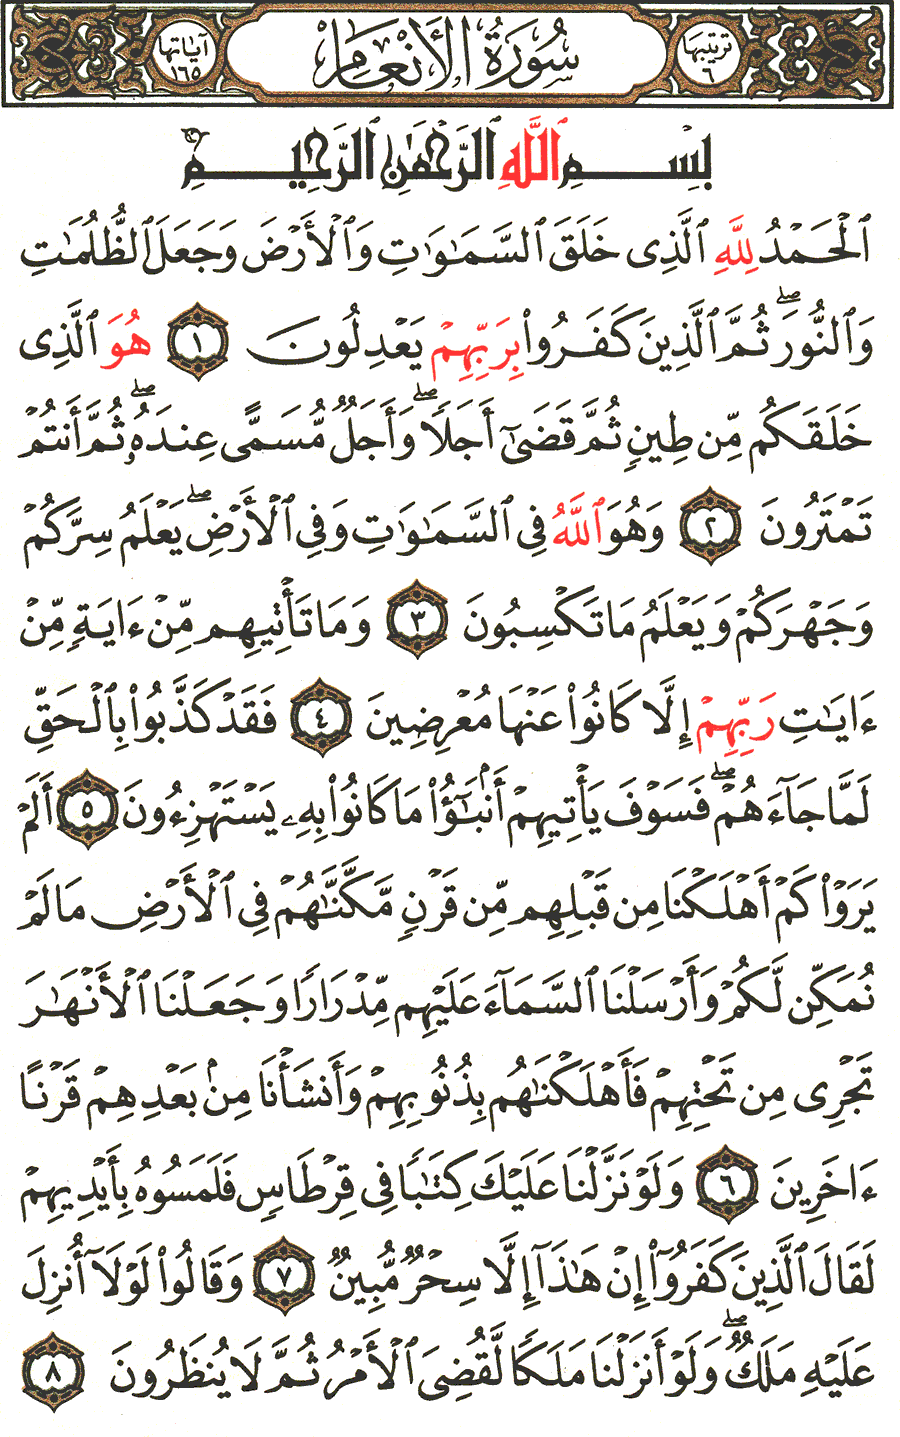 ترتيبها ٦ سُورَةُ الأَنْعَامِ آياتها ١٦٥
بِسْمِ ٱللَّهِ ٱلرَّحْمَٰنِ ٱلرَّحِيمِ
ٱلْحَمْدُ لِلَّهِ ٱلَّذِى خَلَقَ ٱلسَّمَٰوَٰتِ وَٱلْأَرْضَ وَجَعَلَ ٱلظُّلُمَٰتِ
وَٱلنُّورَ ۖ ثُمَّ ٱلَّذِينَ كَفَرُوا۟ بِرَبِّهِمْ يَعْدِلُونَ ١ هُوَ ٱلَّذِى
خَلَقَكُم مِّن طِينٍ ثُمَّ قَضَىٰٓ أَجَلًا ۖ وَأَجَلٌ مُّسَمًّى عِندَهُۥ ۖ ثُمَّ أَنتُمْ
تَمْتَرُونَ ٢ وَهُوَ ٱللَّهُ فِى ٱلسَّمَٰوَٰتِ وَفِى ٱلْأَرْضِ ۖ يَعْلَمُ سِرَّكُمْ
وَجَهْرَكُمْ وَيَعْلَمُ مَا تَكْسِبُونَ ٣ وَمَا تَأْتِيهِم مِّنْ ءَايَةٍ مِّنْ
ءَايَٰتِ رَبِّهِمْ إِلَّا كَانُوا۟ عَنْهَا مُعْرِضِينَ ٤ فَقَدْ كَذَّبُوا۟ بِٱلْحَقِّ
لَمَّا جَآءَهُمْ ۖ فَسَوْفَ يَأْتِيهِمْ أَنۢبَٰٓؤُا۟ مَا كَانُوا۟ بِهِۦ يَسْتَهْزِءُونَ ٥ أَلَمْ
يَرَوْا۟ كَمْ أَهْلَكْنَا مِن قَبْلِهِم مِّن قَرْنٍ مَّكَّنَّٰهُمْ فِى ٱلْأَرْضِ مَا لَمْ
نُمَكِّن لَّكُمْ وَأَرْسَلْنَا ٱلسَّمَآءَ عَلَيْهِم مِّدْرَارًا وَجَعَلْنَا ٱلْأَنْهَٰرَ
تَجْرِى مِن تَحْتِهِمْ فَأَهْلَكْنَٰهُم بِذُنُوبِهِمْ وَأَنشَأْنَا مِنۢ بَعْدِهِمْ قَرْنًا
ءَاخَرِينَ ٦ وَلَوْ نَزَّلْنَا عَلَيْكَ كِتَٰبًا فِى قِرْطَاسٍ فَلَمَسُوهُ بِأَيْدِيهِمْ
لَقَالَ ٱلَّذِينَ كَفَرُوٓا۟ إِنْ هَٰذَآ إِلَّا سِحْرٌ مُّبِينٌ ٧ وَقَالُوا۟ لَوْلَآ أُنزِلَ
عَلَيْهِ مَلَكٌ ۖ وَلَوْ أَنزَلْنَا مَلَكًا لَّقُضِىَ ٱلْأَمْرُ ثُمَّ لَا يُنظَرُونَ ٨